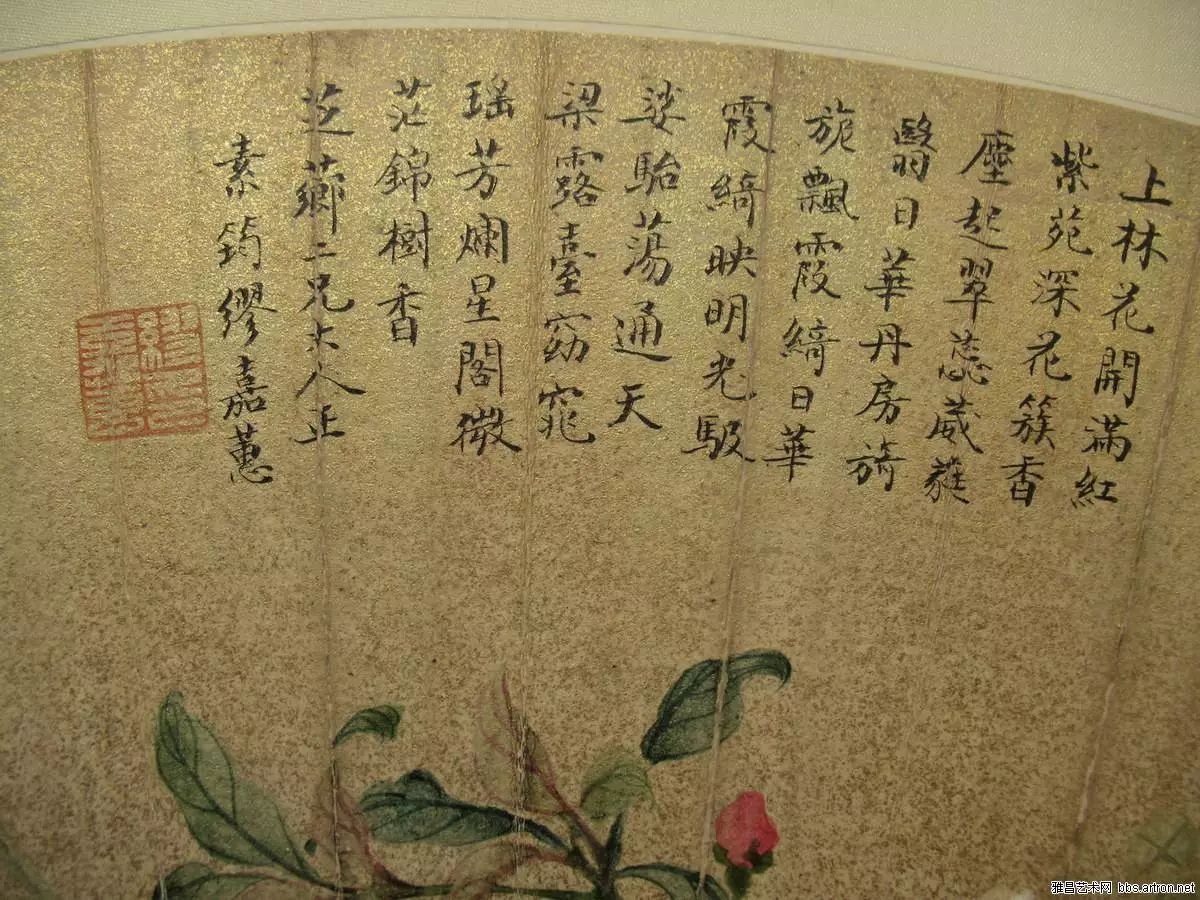 上林花開滿紅
紫苑深花簇香
塵起翠蕊葳蕤
翳日華丹房旖
旎飄霞綺日華
霞綺映明光馺
娑駘蕩通天
梁露臺窈窕
瑤芳爛星閣微
茫錦樹香
芝薌二兄大人正
素筠繆嘉蕙
雅昌艺术网 bbs.artron.net